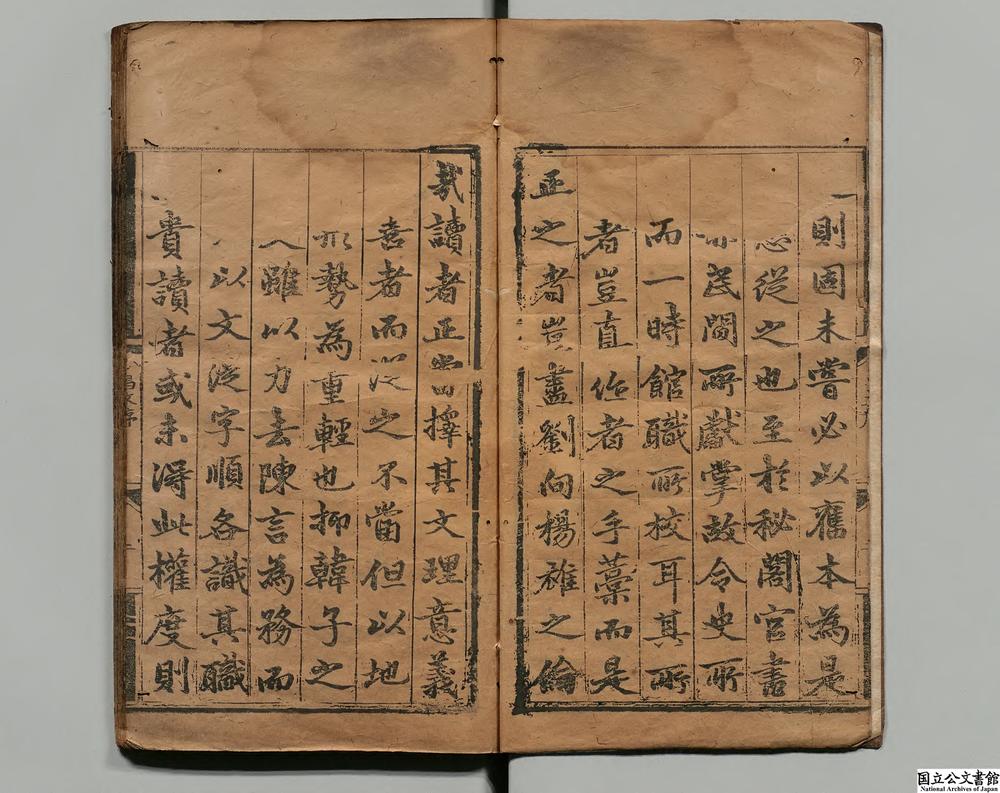 則固未嘗必以舊本為是
悉從之也至於秘閣官書
亦民間所獻掌故令史所
而一時館職所校耳其所
者豈直作者之手藁而是
正之者豈盡劉向楊雄之倫
哉讀者正當擇其文理意義
善者而從之不當但以地
形勢為重輕也抑韓子之
雖以力去陳言為務而
以文從字順各識其職
貴讀者或未得此權度則
国立公文書館
National Archives of Japan